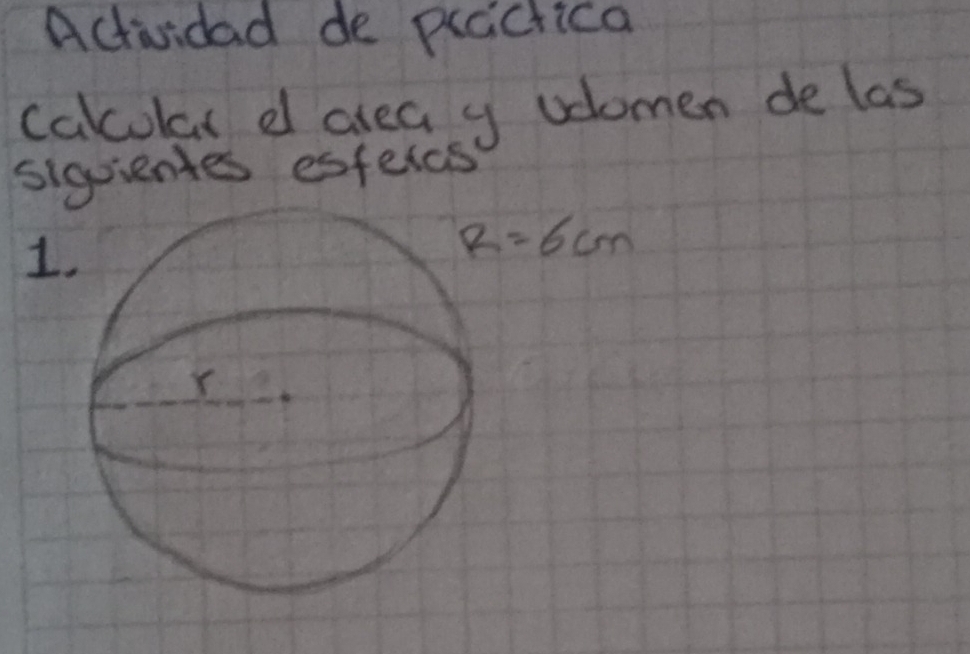 Actividad de práctica
Calcular el area y volumen de las
siguientes esferas
1.
R=6cm
r